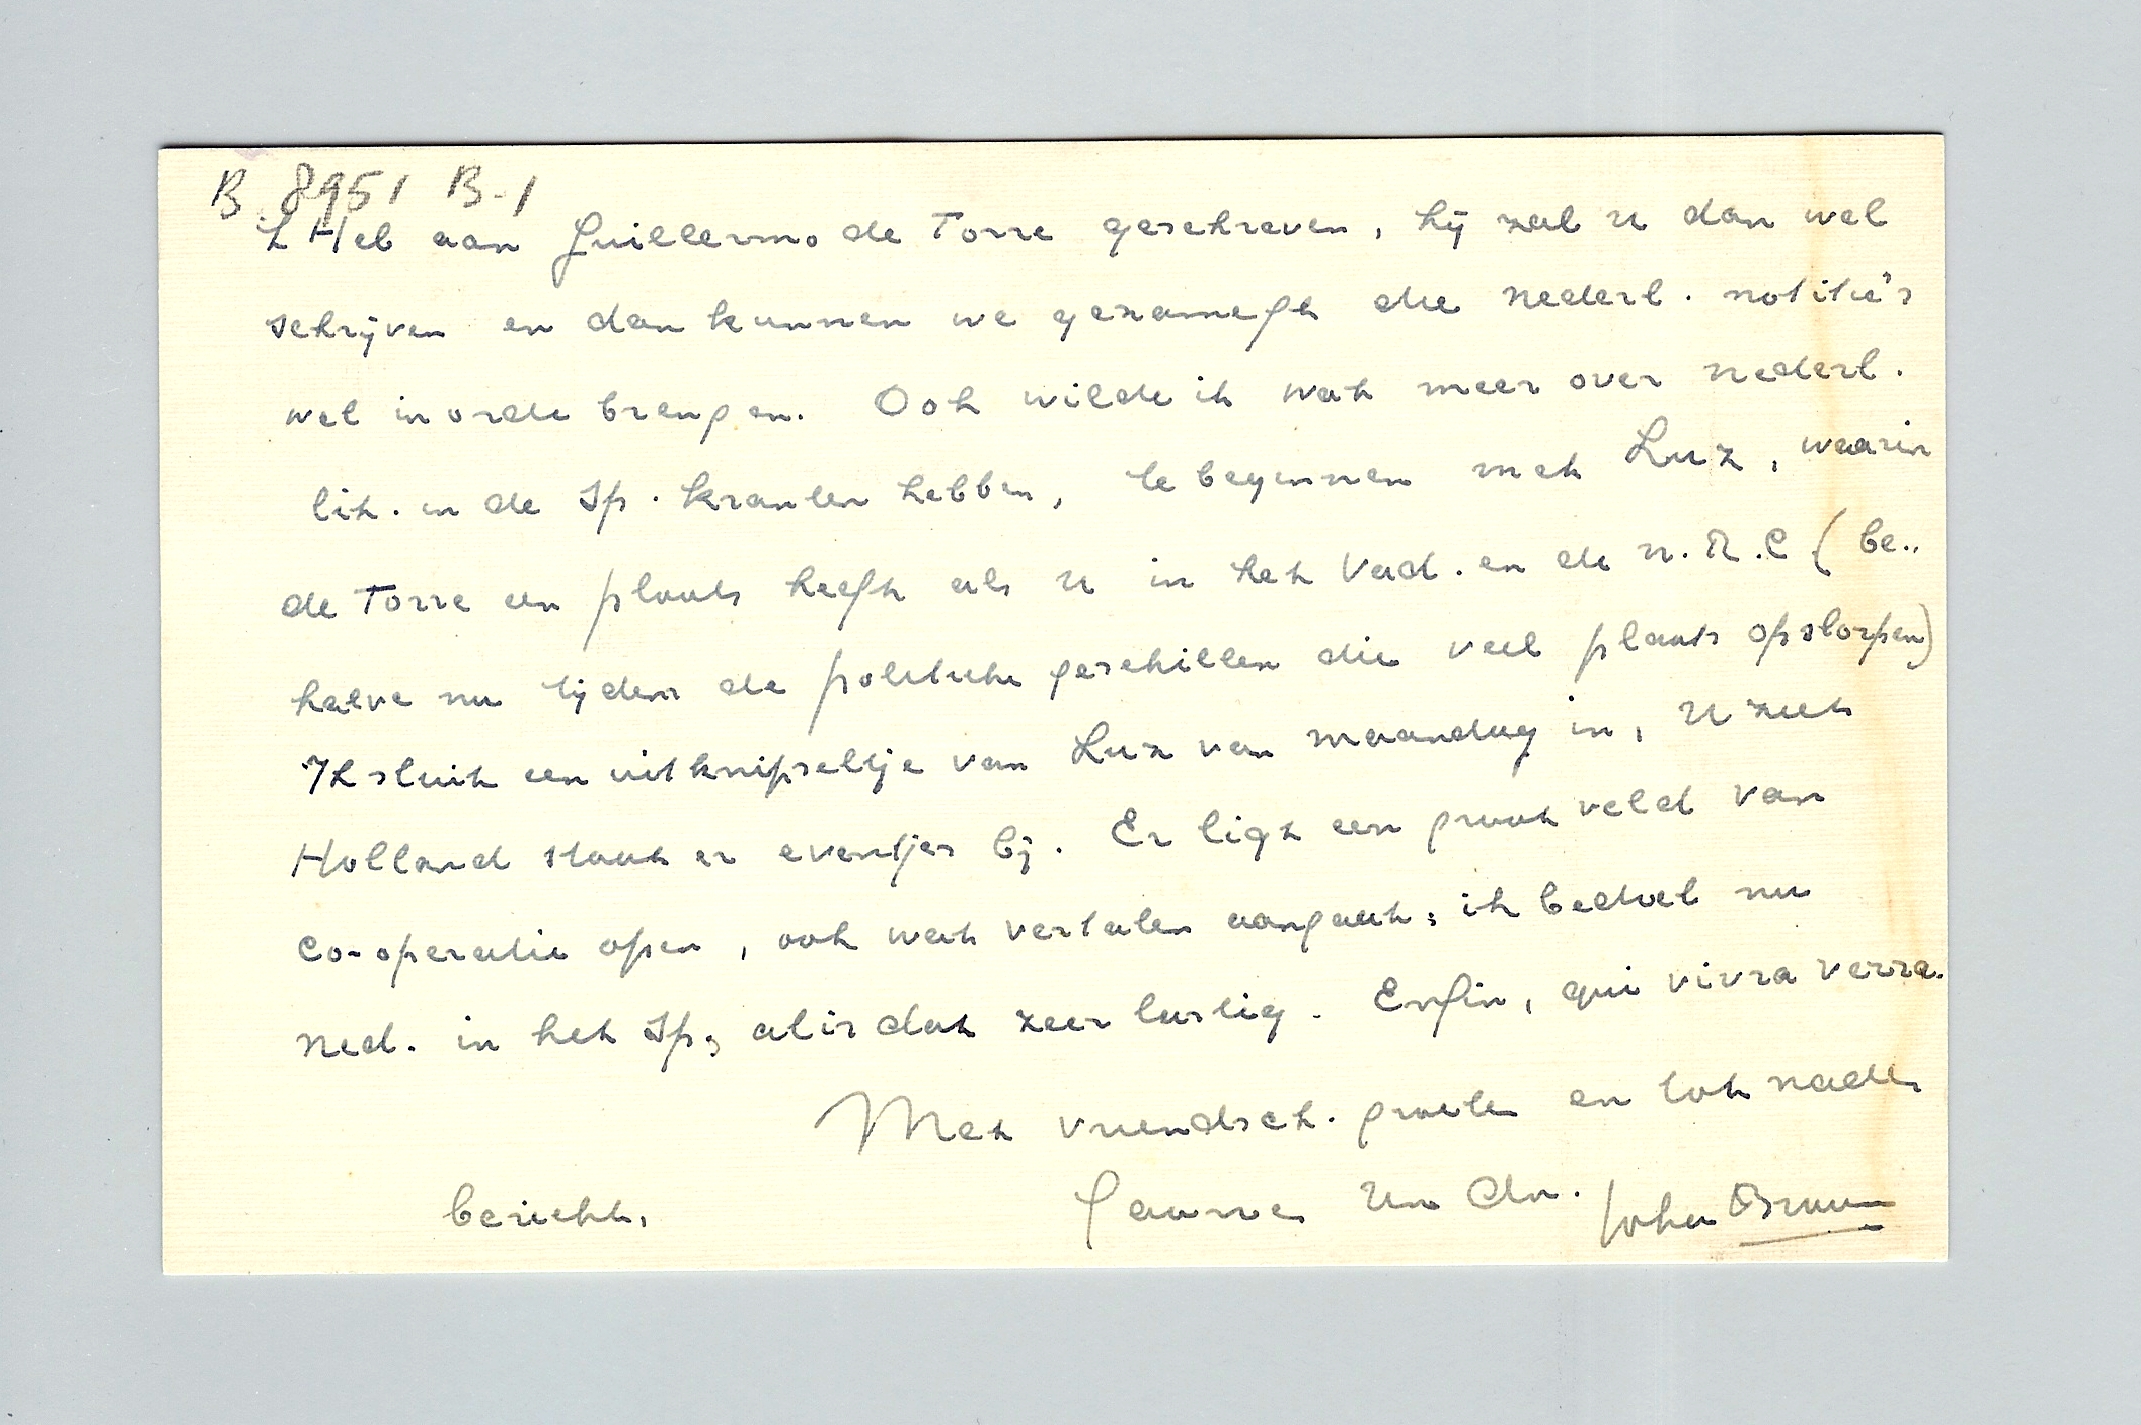 B 8951 B-1
Heb aan Guillermo de Torre geschreven, hij zal u dan wel
schrijven en dan kunnen we gezamelk die nederl. notitie's
wel in orde brengen. Ook wilde ik wat meer over nederl.
lit. in de Sp. kranten hebben, te beginnen met Luz, waarin
de Torre een plaats heeft als u in het Vad. en de N.R.C (be..
halve nu tijdens de politieke geschillen die veel plaats opslorpen)
Ik sluit een uitknipseltje van Luz van maandag in, U ziet
Holland staat er eventjes bij. Er ligt een groot veld van
co-operatie open, ook wat vertalen aangaat; ik bedoel nu
ned. in het Sp, al is dat zeer lastig. Enfin, qui vivra verra.
Met vriendsch. groeten en tot nader
bericht,
Gaarne Uw Dn. Johan Brouwer